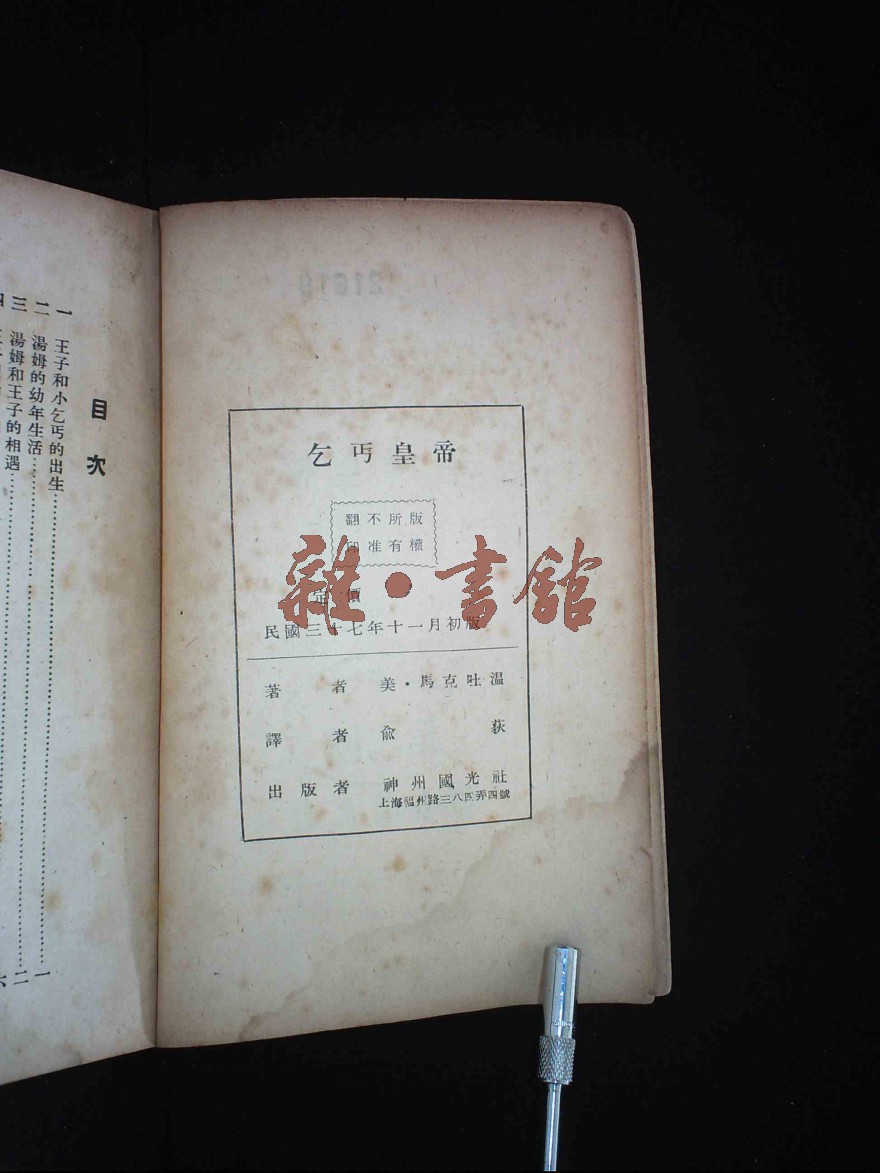 乞丐皇帝
版權所有
不准翻印
定價
民國三十七年十一月初版
著者 美·馬克吐温
譯者 俞荻
出版者 神州國光社
上海福州路三八四弄四號
目次
一 王子和小乞丐的出生……一
二 湯姆的幼年生活……二
三 湯姆和王子的相遇……六
四
雜·書館